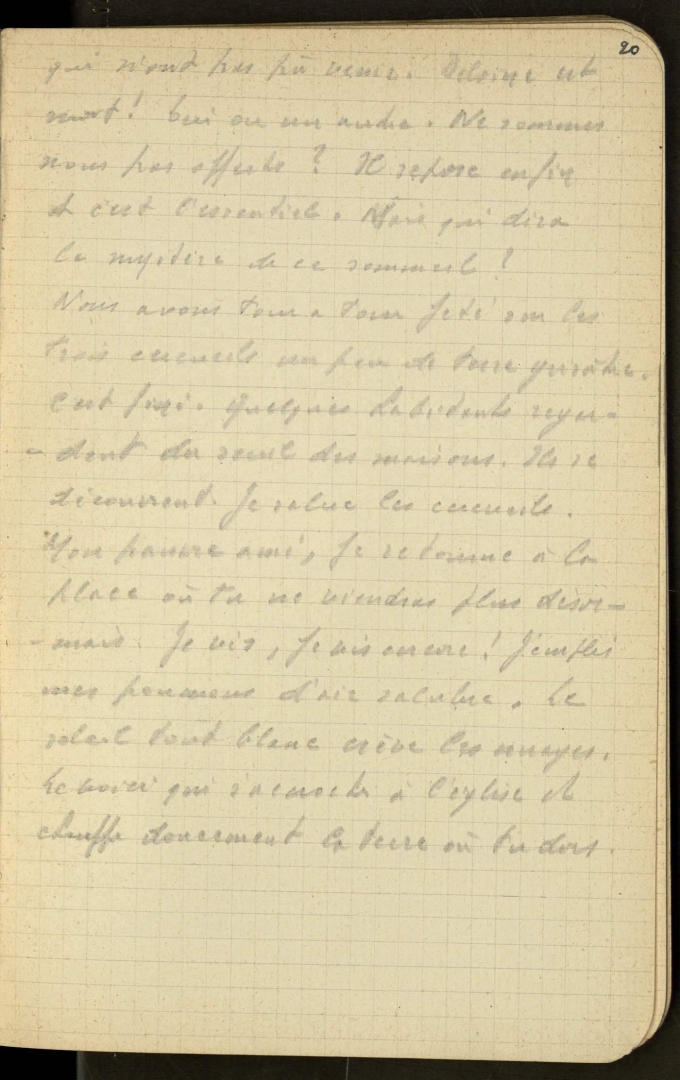 20
qui n'ont pas pû venir. est
mort! Lui ou un autre. Ne sommes
nous pas offerts? Il repose enfin
et c'est l'essentiel. Mais qui dira
le mystère de ce sommeil?
Nous avons tour a tour jeté sur les
trois cercueils un peu de terre
C'est fini. Quelques habitants regar-
- dent du seuil des maisons. Ils se
découvrent. Je salue les cercueils.
Mon pauvre ami, je retourne à la
place où tu ne viendras plus désor-
- mais. Je vis, je vis encore! J'emplis
mes poumons d'air salubre. Le
soleil tout blanc crève les nuages.
Le voici qui s'accroche à l'église et
chauffe doucement la terre où tu dors.